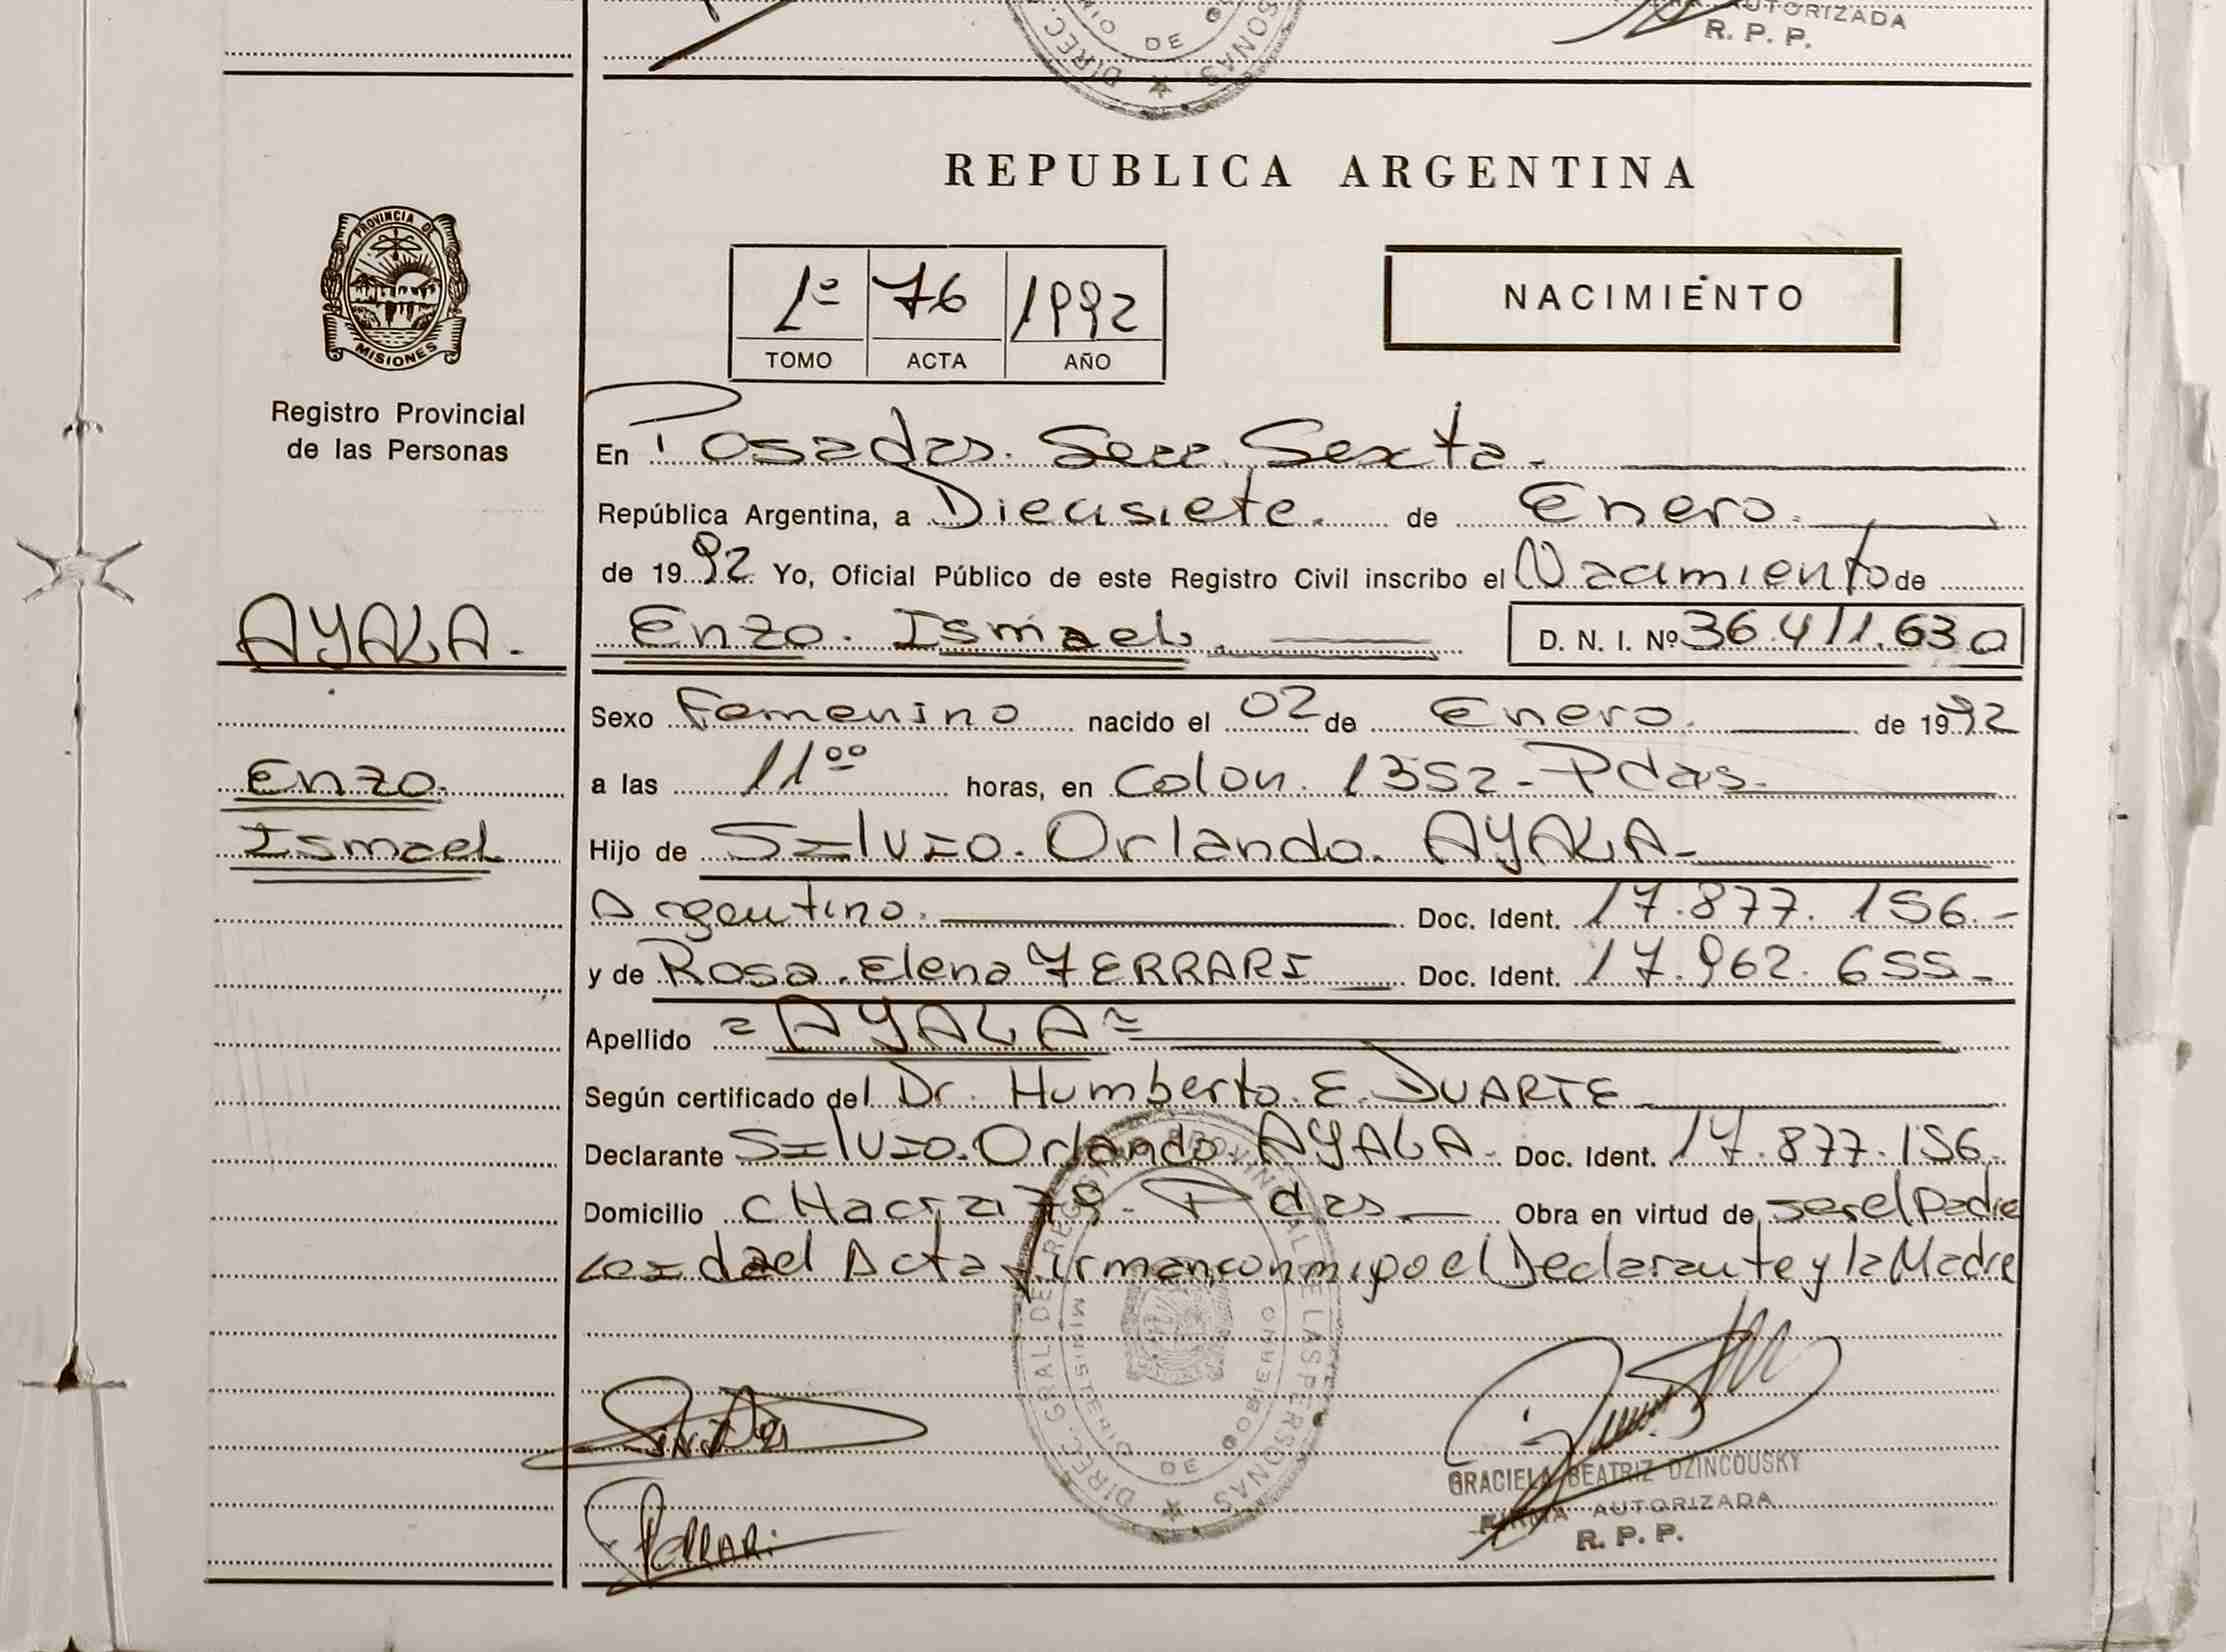 AUTORIZADA
R. P. P.
DIREC.
DE
SONAS
REPUBLICA ARGENTINA
PROVINCIA DE
MISIONES
Registro Provincial
de las Personas
1º 76 1992
TOMO ACTA AÑO
NACIMIENTO
En Posadas. Secc. Sexta.
República Argentina, a Diecisiete. de Enero.
de 1992 Yo, Oficial Público de este Registro Civil inscribo el Nacimiento de
AYALA.
Enzo. Ismael. D. N. I. Nº 36.411.630
Sexo Femenino nacido el 02 de Enero. de 1992
Enzo.
Ismael
a las 11ºº horas, en Colon. 1352 - Pdas.
Hijo de Silvio. Orlando. AYALA-
Argentino. Doc. Ident. 17.877.156.-
y de Rosa. Elena FERRARI Doc. Ident. 17.962.655-
Apellido = AYALA =
Según certificado del Dr. Humberto. E. DUARTE
Declarante Silvio. Orlando. AYALA- Doc. Ident. 17.877.156-
Domicilio CHacra 79- Pdas Obra en virtud de ser el Padre
Leida el Acta firman conmigo el Declarante y la Madre
DIREC. GRAL. DE REGISTRO PROVINCIAL DE LAS PERSONAS
MINISTERIO DE GOBIERNO
Ferrari
GRACIELA BEATRIZ DZINCOUSKY
FIRMA AUTORIZADA
R. P. P.